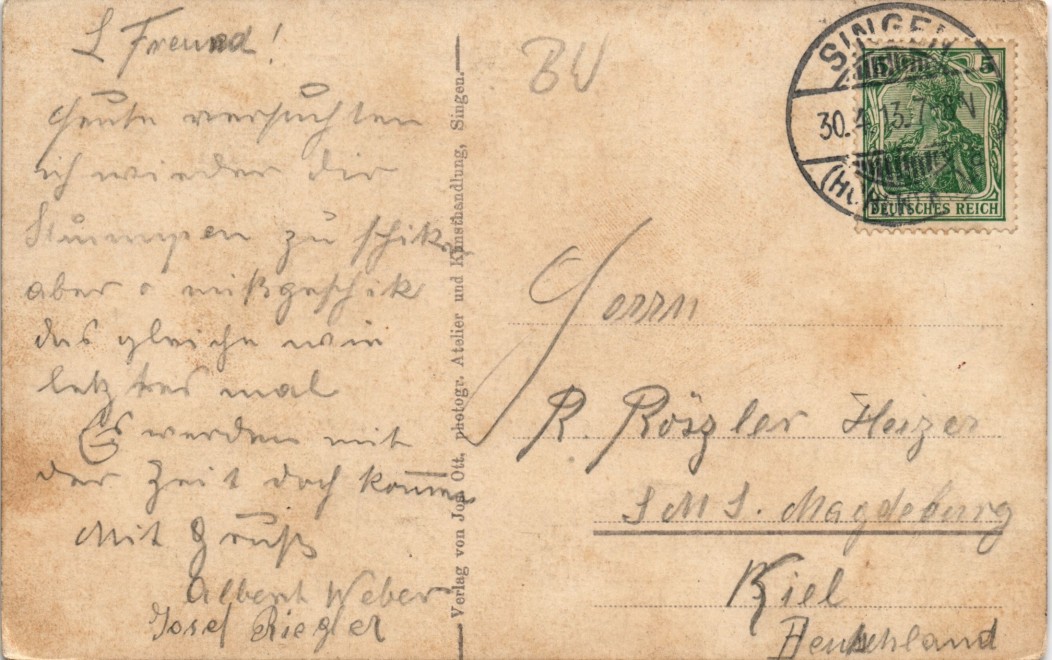 L Freund!
Heute versuchten
ich wieder die
zu schik
aber misgeschik
das gleiche wie
letztes mal
Es werden mit
der Zeit doch kommen
Mit Gruß
Albert Weber
Josef Riegler
Verlag von Jos. Ott, photogr. Atelier und Kunsthandlung, Singen.
BW
SINGEN
30.4.13.7 N
5
DEUTSCHES REICH
Herrn
R. Röszler Heizer
S M S. Magdeburg
Kiel
Deutschland